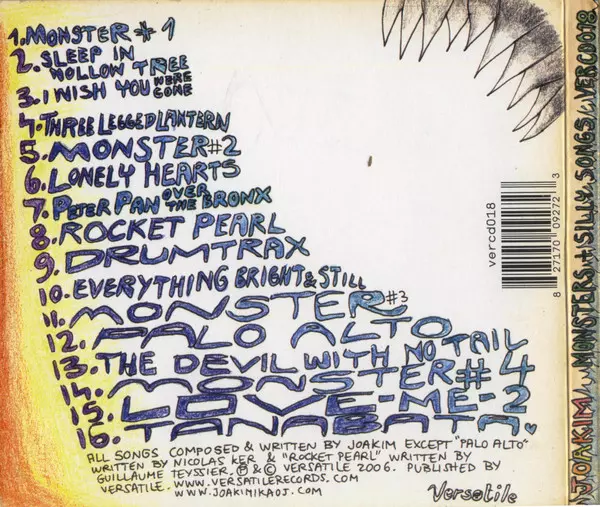 1. MONSTER # 1
2. SLEEP IN
HOLLOW TREE
3. I WISH YOU WERE GONE
4. THREE LEGGED LANTERN
5. MONSTER #2
6. LONELY HEARTS
7. PETER PAN OVER THE BRONX
8. ROCKET PEARL
9. DRUMTRAX
10. EVERYTHING BRIGHT & STILL
11. MONSTER #3
12. PALO ALTO
13. THE DEVIL WITH NO TAIL
14. MONSTER # 4
15. LOVE-ME-2
16. TANABATA.
ALL SONGS COMPOSED & WRITTEN BY JOAKIM EXCEPT "PALO ALTO"
WRITTEN BY NICOLAS KER & "ROCKET PEARL" WRITTEN BY
GUILLAUME TEYSSIER. ℗ & © VERSATILE 2006. PUBLISHED BY
VERSATILE. WWW.VERSATILERECORDS.COM
WWW.JOAKIMIKAOJ.COM
Versatile
vercd018
8 27170 09272 3
JOAKIM / MONSTERS & SILLY SONGS / VERCD018